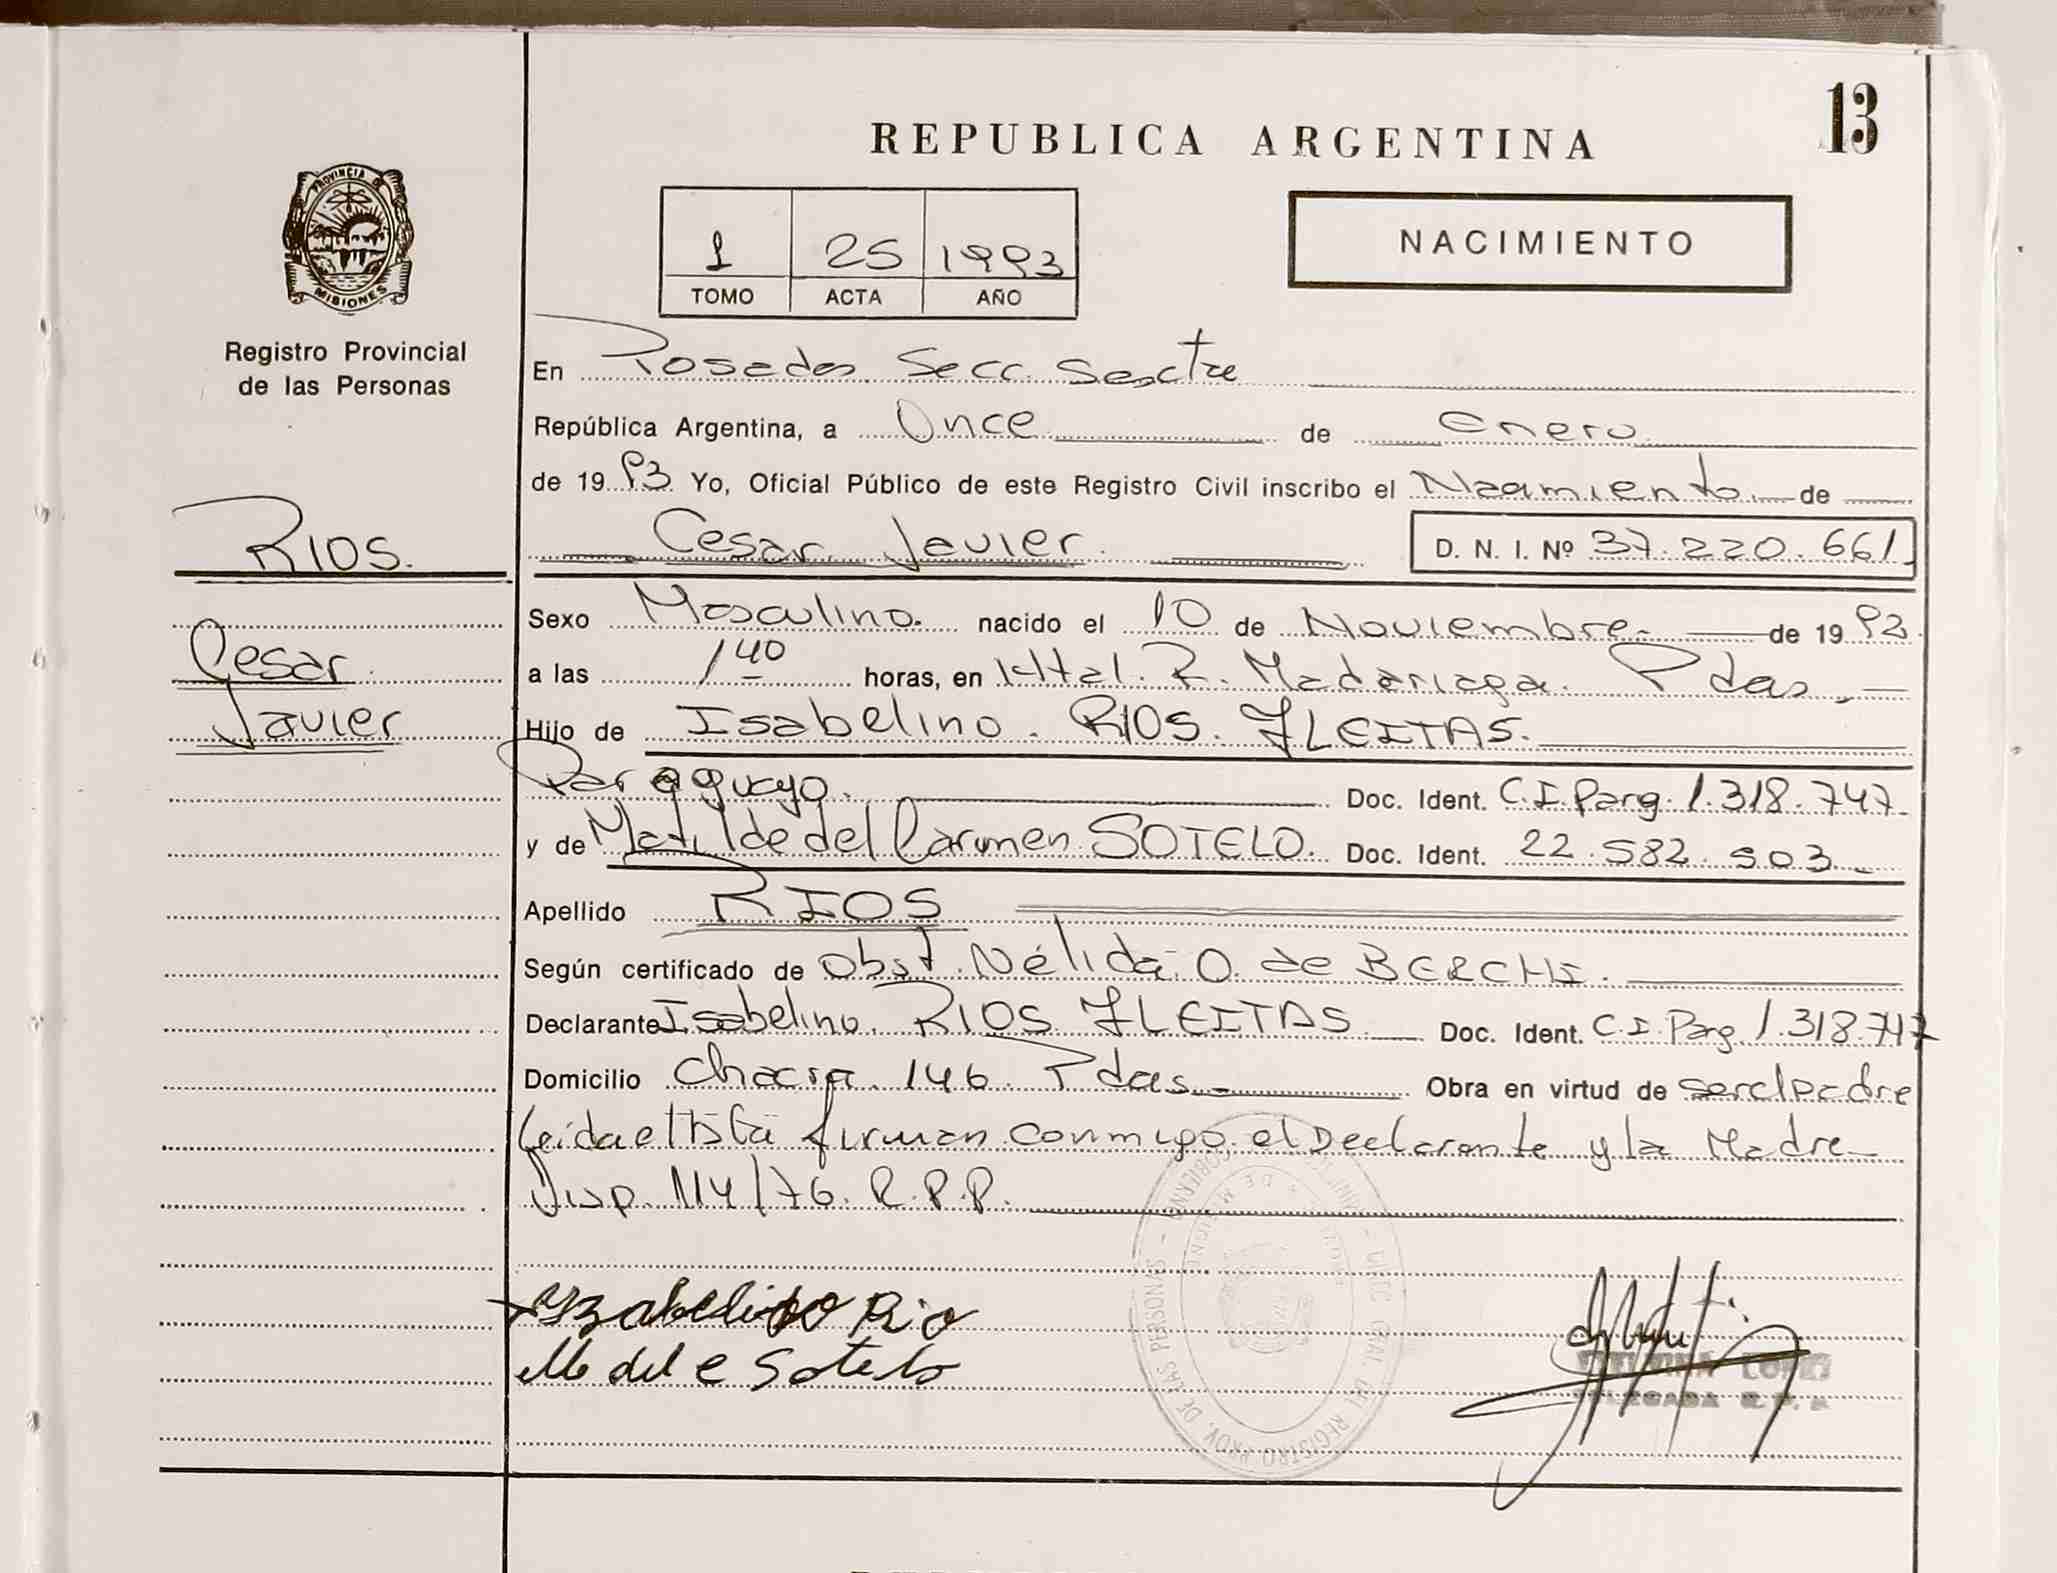 13
REPUBLICA ARGENTINA
PROVINCIA DE
MISIONES
1 25 1993
TOMO ACTA AÑO
NACIMIENTO
Registro Provincial
de las Personas
En Posadas Secc. Sexta
República Argentina, a Once de Enero
de 19 93 Yo, Oficial Público de este Registro Civil inscribo el Nacimiento de
Cesar Javier D. N. I. Nº 37.220.661
RIOS.
Cesar
Javier
Sexo Masculino. nacido el 10 de Noviembre de 19 92
a las 1 40 horas, en Htal. R. Madariaga. Pdas.
Hijo de Isabelino. RIOS. FLEITAS.
Paraguayo. Doc. Ident. C.I. Parg. 1.318.747
y de Matilde del Carmen SOTELO. Doc. Ident. 22.582.903
Apellido RIOS
Según certificado de Obst. Nélida O. de BERCHI.
Declarante Isabelino RIOS FLEITAS Doc. Ident. C.I. Parg. 1.318.747
Domicilio Chacra 146. Pdas Obra en virtud de ser el Padre
Leida el Acta firman conmigo el Declarante y la Madre
Disp. 114/76. R.P.P.
Isabelino Rio
M del C Sotelo
DELEGADA R.P.P.